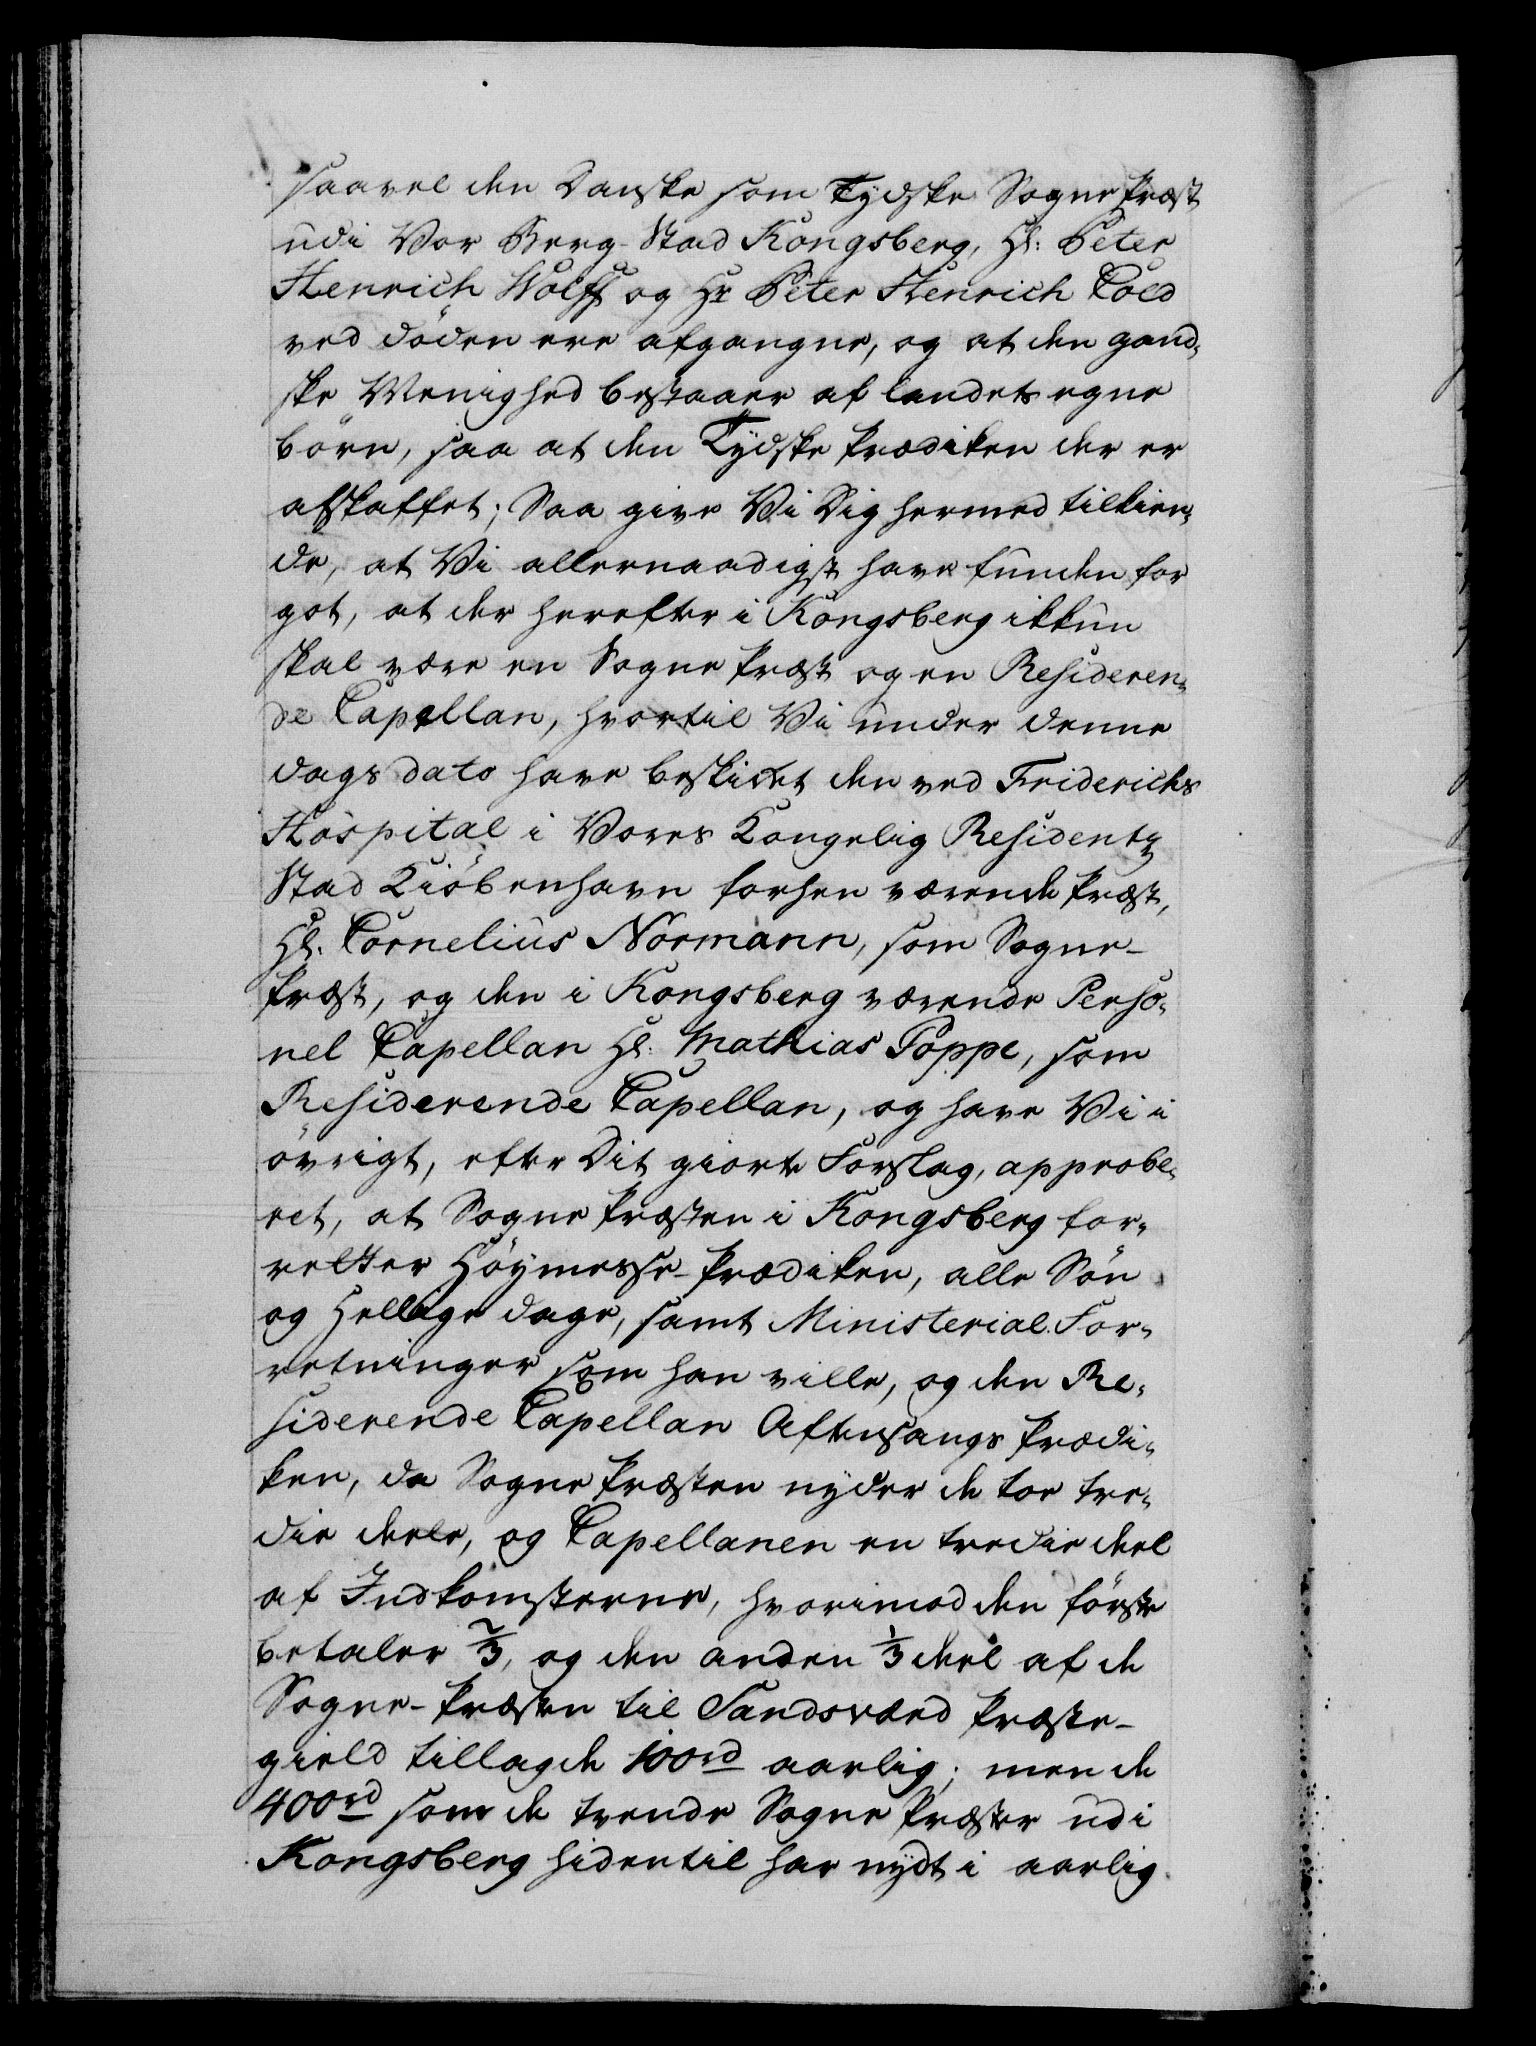 saavel den Danske som Tydske Sogne Præst
udi Vor Berg-Stad Kongsberg, Hl: Peter
Henrich Wolff og Hr Peter Henrich Cold
ved döden ere afgangne, og at den gand-
ske Menighed bestaaer af landets egne
börn, saa at den Tydske Prædiken der er
afskaffet; Saa give Vi Dig hermed tilkien-
de, at Vi allernaadigst have funden for
got, at der herefter i Kongsberg ikkun
skal være en Sogne Præst og en Resideren-
de Capellan, hvortil Vi under denne
dags dato have beskicket den ved Friderichs
Hospital i Vores Kongelig Residentz
Stad Kiöbenhavn forhen værende Præst,
Hl. Cornelius Normann, som Sogne-
Præst, og den i Kongsberg værende Perso-
nel Capellan Hl. Mathias Poppe, som
Residerende Capellan, og have Vi i
övrigt, efter Dit giorte Forslag, approbe-
ret, at Sogne Præsten i Kongsberg for-
retter Höymesse-Prædiken, alle Sön
og Hellige dage, samt Ministerial-For-
retninger som han ville, og den Re-
siderende Capellan Aftensangs Prædi-
ken, da Sogne Præsten nyder de toe tre-
die deele, og Capellanen en tredie deel
af Indkomsterne, hvorimod den förste
betaler 2/3, og den anden 1/3 deel af de
Sogne-Præsten til Sandsværd Præste-
gield tillagde 100rd aarlig; men de
400rd som de tvende Sogne Præster udi
Kongsberg hidentil har nydt i aarlig